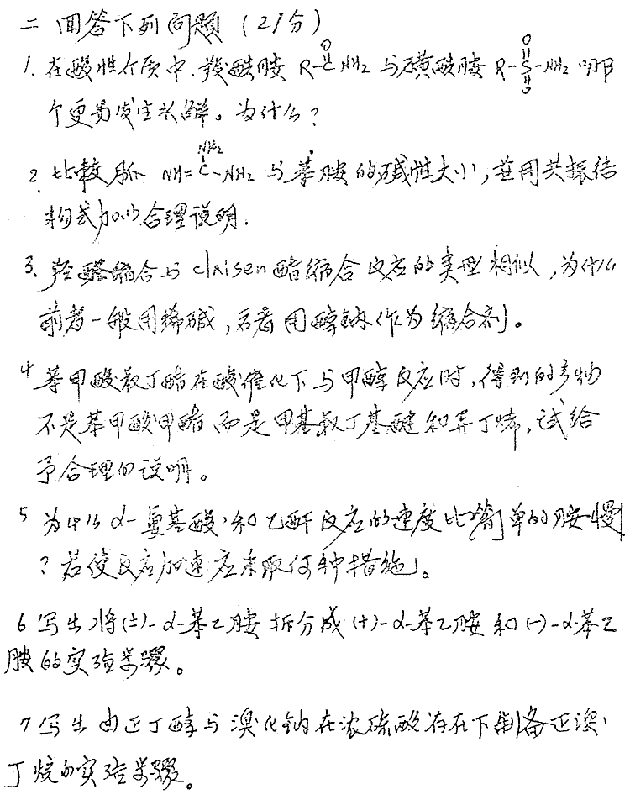 二 回答下列问题 (21分)
1. 在酸性介质中，羧酰胺 R-C(=O)-NH2 与磺酰胺 R-S(=O)(=O)-NH2 哪
个更易发生水解。为什么？
2. 比较脲 NH=C(NH2)-NH2 与苯胺的碱性大小，并用共振结
构式加以合理说明.
3. 羟醛缩合与 claisen 酯缩合反应的类型相似，为什么
前者一般用稀碱，后者用醇钠作为缩合剂。
4 苯甲酸叔丁酯在酸催化下与甲醇反应时，得到的产物
不是苯甲酸甲酯而是甲基叔丁基醚和异丁烯，试给
予合理的说明。
5 为什么 α-氨基酸和乙酐反应的速度比简单的胺慢
？若使反应加速应采取何种措施。
6 写出将(±)-α-苯乙胺拆分成(+)-α-苯乙胺和(-)-α-苯乙
胺的实验步骤。
7 写出由正丁醇与溴化钠在浓硫酸存在下制备正溴
丁烷的实验步骤。